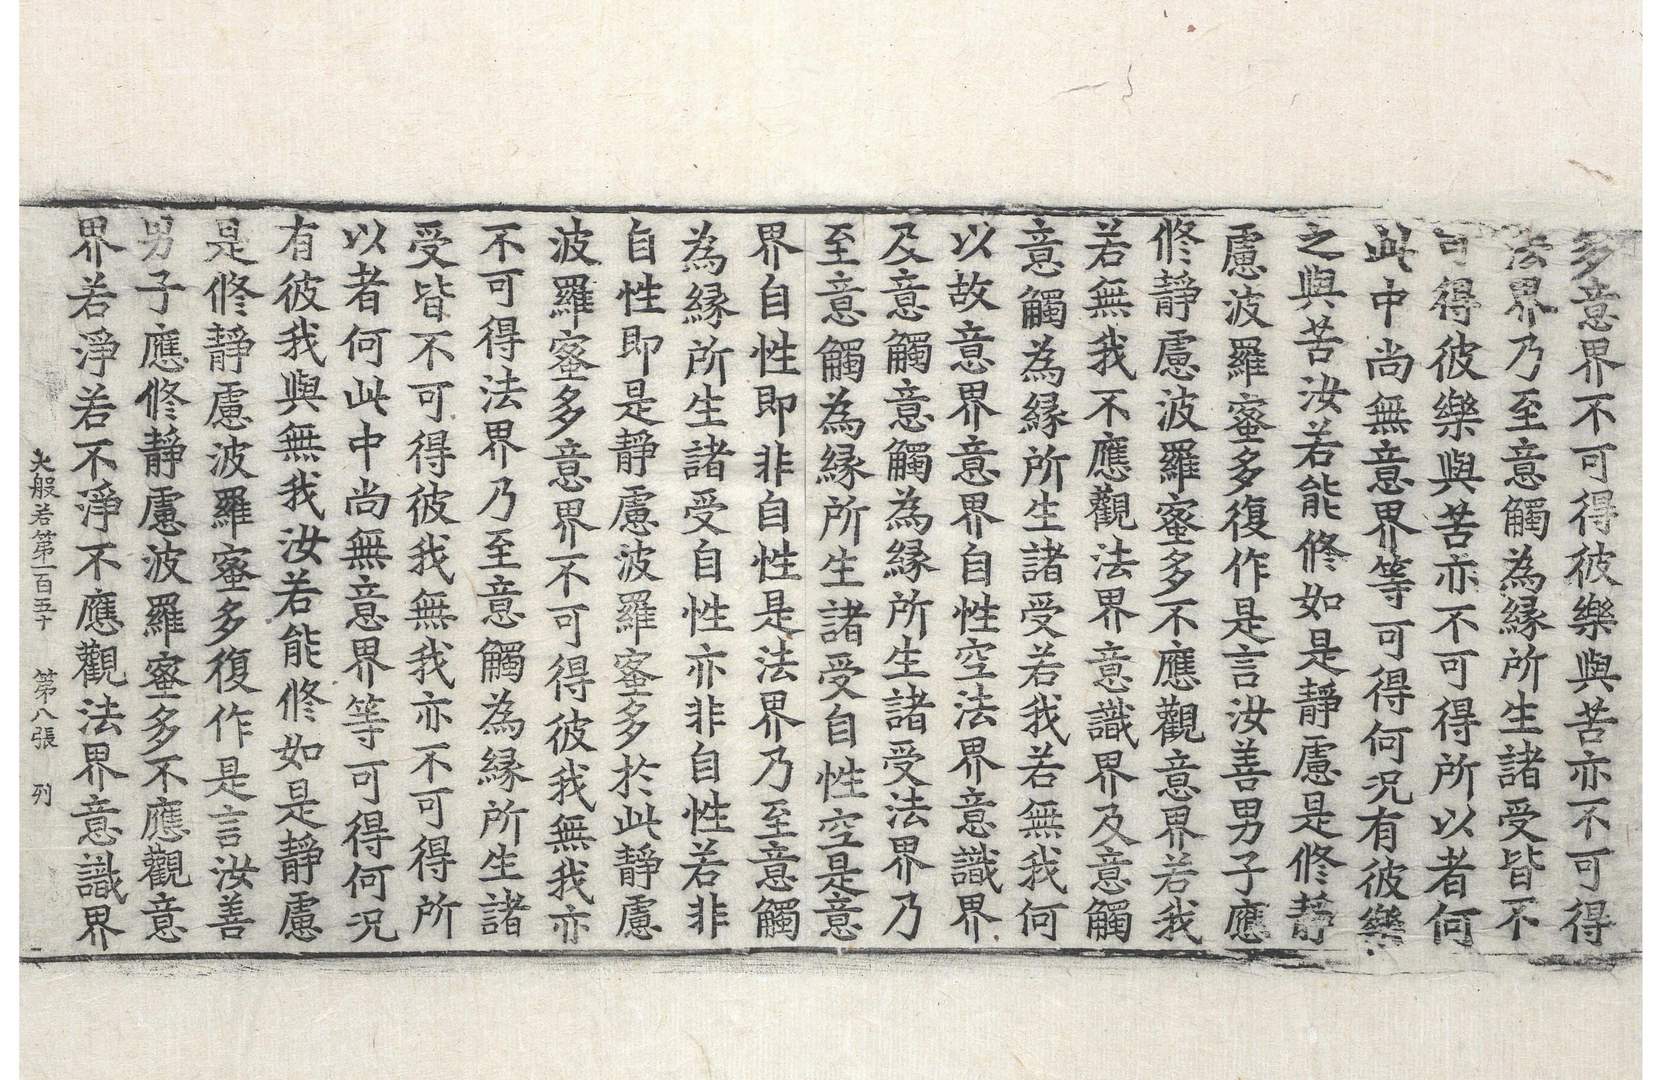 多意界不可得彼樂與苦亦不可得
法界乃至意觸為緣所生諸受皆不
可得彼樂與苦亦不可得所以者何
此中尚無意界等可得何況有彼樂
之與苦汝若能修如是靜慮是修靜
慮波羅蜜多復作是言汝善男子應
修靜慮波羅蜜多不應觀意界若我
若無我不應觀法界意識界及意觸
意觸為緣所生諸受若我若無我何
以故意界意界自性空法界意識界
及意觸意觸為緣所生諸受法界乃
至意觸為緣所生諸受自性空是意
界自性即非自性是法界乃至意觸
為緣所生諸受自性亦非自性若非
自性即是靜慮波羅蜜多於此靜慮
波羅蜜多意界不可得彼我無我亦
不可得法界乃至意觸為緣所生諸
受皆不可得彼我無我亦不可得所
以者何此中尚無意界等可得何況
有彼我與無我汝若能修如是靜慮
是修靜慮波羅蜜多復作是言汝善
男子應修靜慮波羅蜜多不應觀意
界若淨若不淨不應觀法界意識界
大般若第一百五十 第八張 列